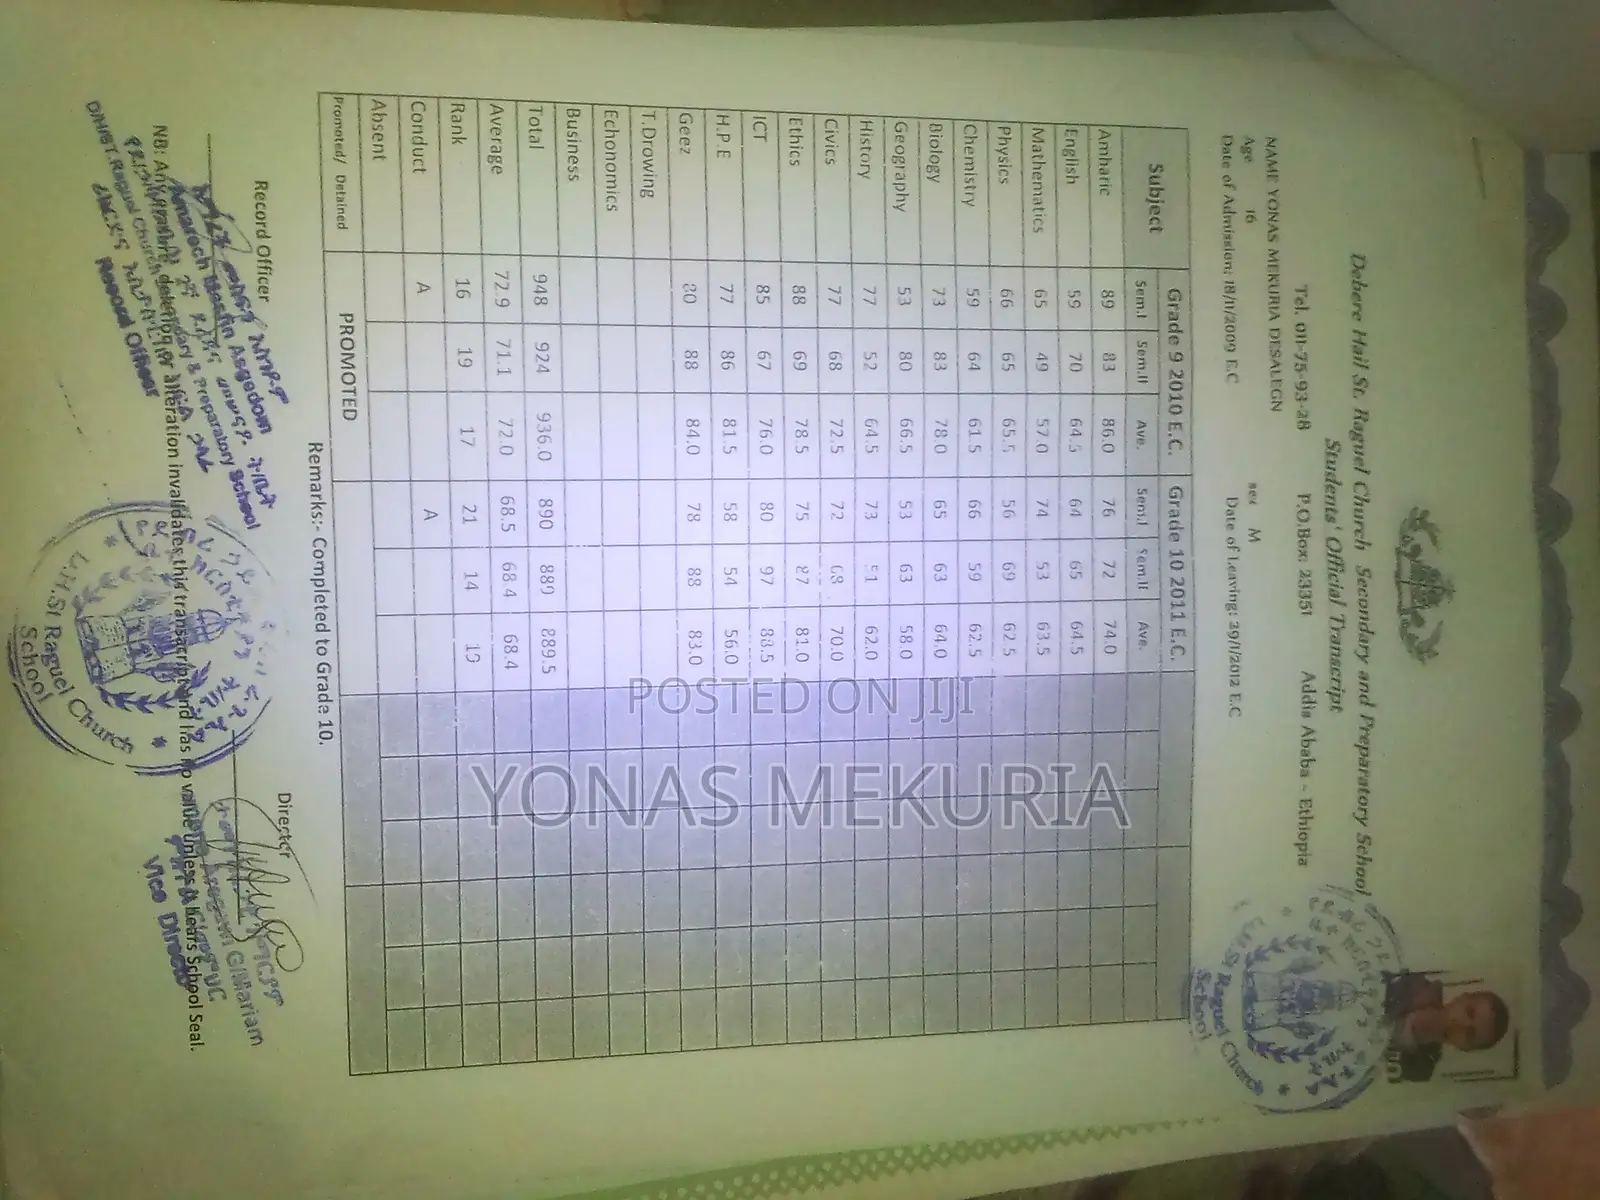 Debere Hail St. Raguel Church Secondary and Preparatory School
Students' Official Transcript
Tel. 011-75-93-28 P.O.Box: 23351 Addis Ababa - Ethiopia
NAME YONAS MEKURIA DESALEGN
Age 16 sex M
Date of Admission: 18/11/2009 E.C Date of Leaving: 29/1/2012 E.C
Subject Grade 9 2010 E.C. Grade 10 2011 E.C.
Sem.I Sem.II Ave. Sem.I Sem.II Ave.
Amharic 89 83 86.0 76 72 74.0
English 59 70 64.5 64 65 64.5
Mathematics 65 49 57.0 74 53 63.5
Physics 66 65 65.5 56 69 62.5
Chemistry 59 64 61.5 66 59 62.5
Biology 73 83 78.0 65 63 64.0
Geography 53 80 66.5 53 63 58.0
History 77 52 64.5 73 51 62.0
Civics 77 68 72.5 72 68 70.0
Ethics 88 69 78.5 75 87 81.0
ICT 85 67 76.0 80 97 88.5
H.P.E 77 86 81.5 58 54 56.0
Geez 80 88 84.0 78 88 83.0
T.Drowing
Echonomics
Business
Total 948 924 936.0 890 889 889.5
Average 72.9 71.1 72.0 68.5 68.4 68.4
Rank 16 19 17 21 14 19
Conduct A A
Absent
Promoted/ Detained PROMOTED
Remarks:- Completed to Grade 10.
Record Officer Director
NB: Any deletion or alteration invalidates this transcript and has no value Unless it bears School Seal.
Record Officer
Vice Director
St Raguel Church
School
St Raguel Church
School
POSTED ON JIJI
YONAS MEKURIA